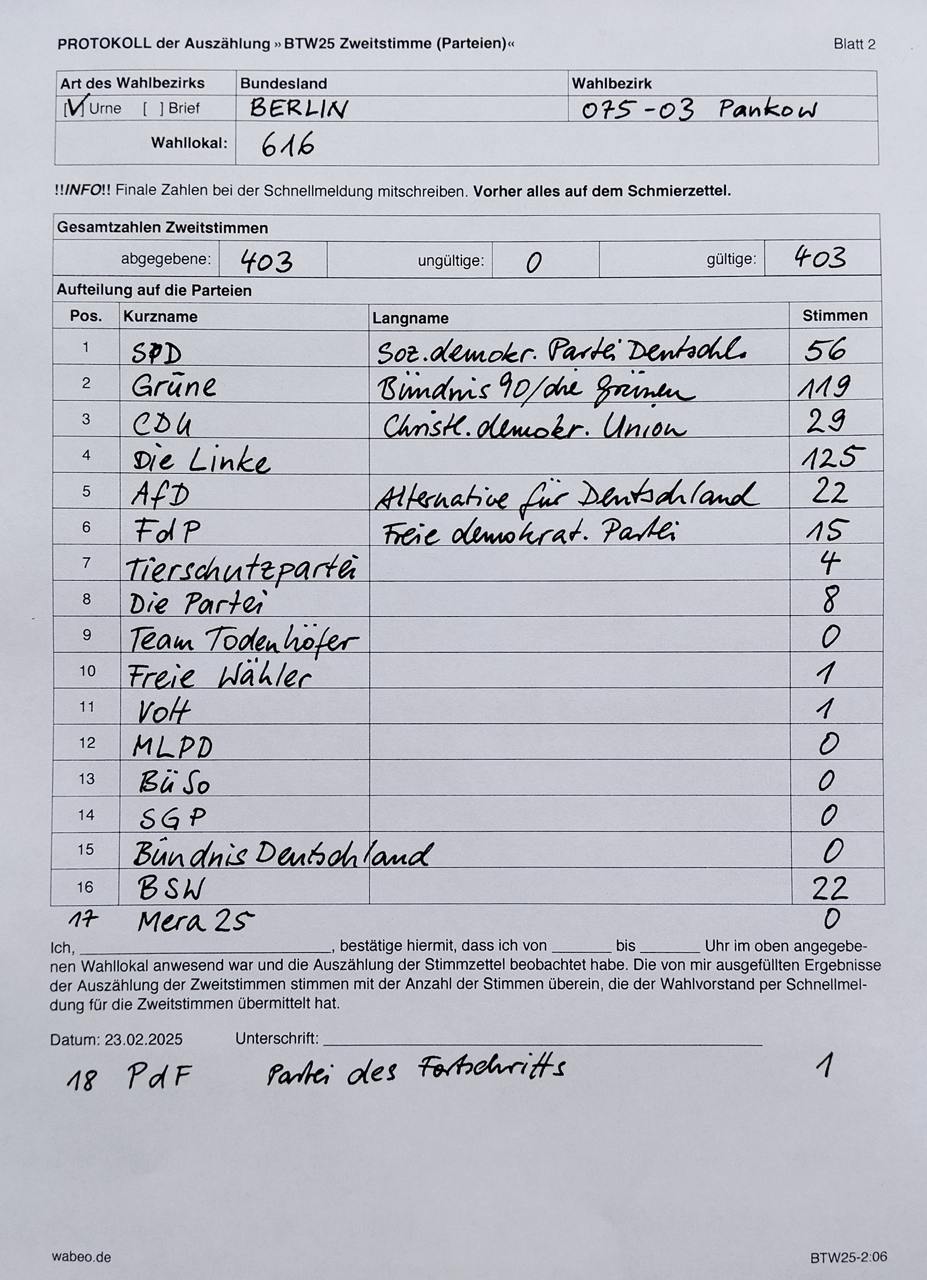 PROTOKOLL der Auszählung »BTW25 Zweitstimme (Parteien)« Blatt 2
Art des Wahlbezirks Bundesland Wahlbezirk
[✓] Urne [ ] Brief BERLIN 075-03 Pankow
Wahllokal: 616
!!INFO!! Finale Zahlen bei der Schnellmeldung mitschreiben. Vorher alles auf dem Schmierzettel.
Gesamtzahlen Zweitstimmen
abgegebene: 403 ungültige: 0 gültige: 403
Aufteilung auf die Parteien
Pos. Kurzname Langname Stimmen
1 SPD Soz.demokr. Partei Deutschl. 56
2 Grüne Bündnis 90/die Grünen 119
3 CDU Christl.demokr. Union 29
4 Die Linke 125
5 AfD Alternative für Deutschland 22
6 FdP Freie demokrat. Partei 15
7 Tierschutzpartei 4
8 Die Partei 8
9 Team Todenhöfer 0
10 Freie Wähler 1
11 Volt 1
12 MLPD 0
13 BüSo 0
14 SGP 0
15 Bündnis Deutschland 0
16 BSW 22
17 Mera 25 0
Ich, ____________________, bestätige hiermit, dass ich von ______ bis ______ Uhr im oben angegebe-
nen Wahllokal anwesend war und die Auszählung der Stimmzettel beobachtet habe. Die von mir ausgefüllten Ergebnisse
der Auszählung der Zweitstimmen stimmen mit der Anzahl der Stimmen überein, die der Wahlvorstand per Schnellmel-
dung für die Zweitstimmen übermittelt hat.
Datum: 23.02.2025 Unterschrift: ____________________
18 PdF Partei des Fortschritts 1
wabeo.de BTW25-2:06